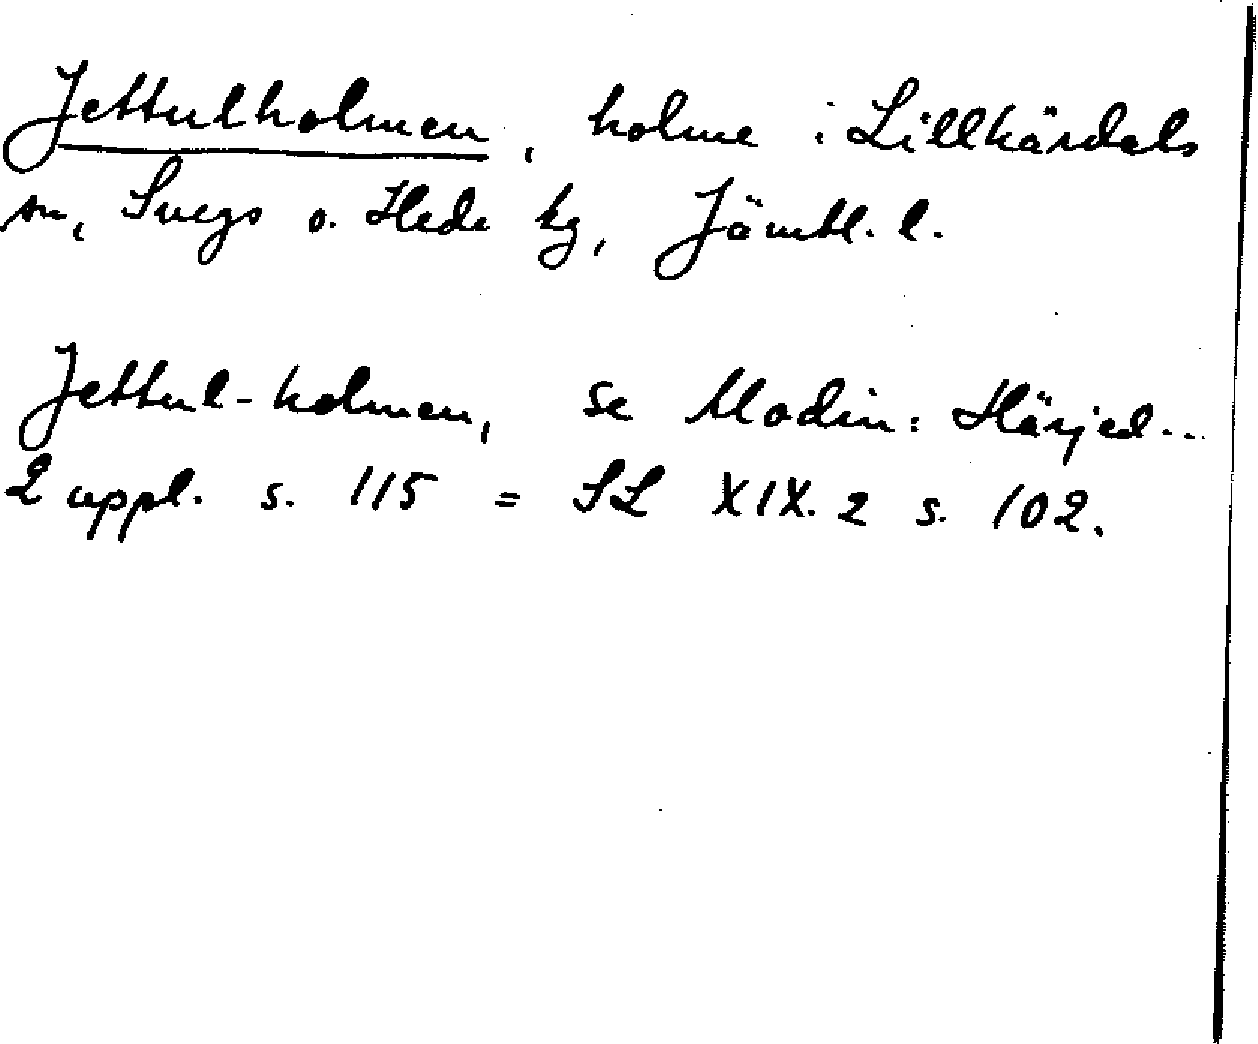 Jettulholmen, holme i Lillhärdals
sn, Svegs o. Hede tg, Jämtl. l.
Jettul-holmen, se Modin: Härjed...
2 uppl. s. 115 = SL XIX. 2 s. 102.